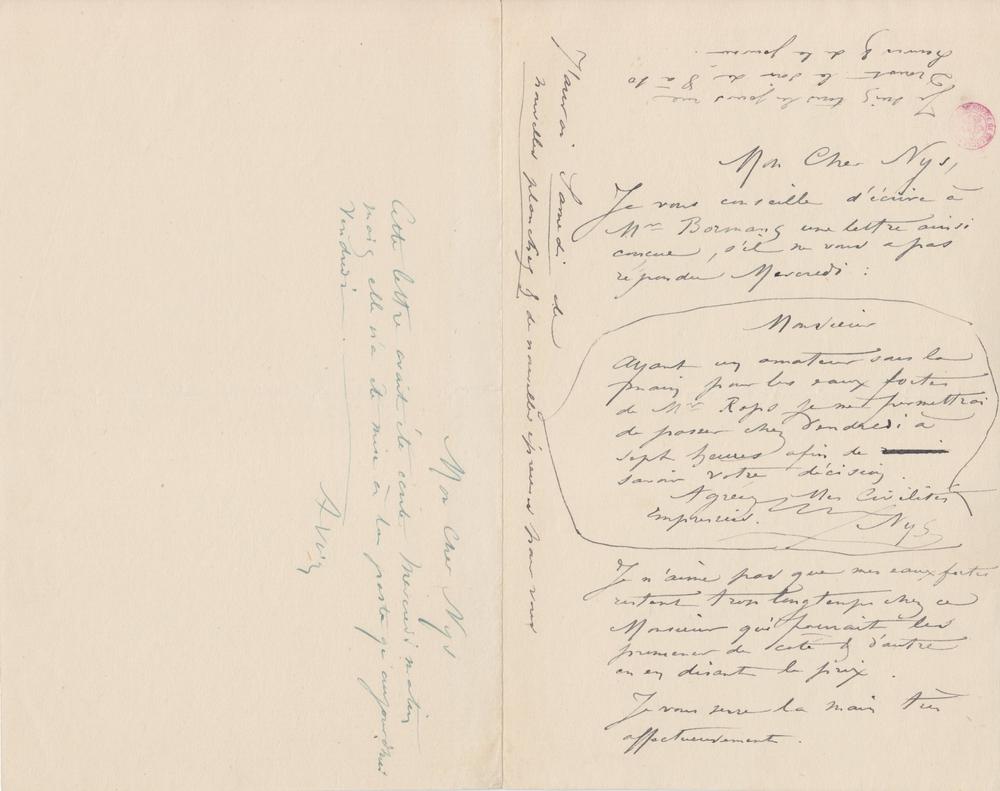 Mon Cher Nys,
Je vous conseille d'écrire à
Mr Bormans une lettre ainsi
concue, s'il ne vous a pas
répondu Mercredi :
Monsieur
Ayant un amateur sous la
main pour les eaux fortes
de Mr Rops je me permettrai
de passer chez Vendredi à
sept heures afin de
savoir votre décision.
Agréez Mes Civilités
Empressées.
Nys
Je n'aime pas que mes eaux fortes
restent trop longtemps chez ce
Monsieur qui pourrait les
promener de coté & d'autre
en en disant le prix.
Je vous serre la main très
affectueusement.
J'aurai Samedi de
nouvelles planches & de nouvelles épreuves pour vous
Je suis tous les jours
le soir de 8 à 10
heures & de la journée.
Mon Cher Nys
Cette lettre avait été écrite Mercredi matin
mais elle n'a été mise à la poste qu'aujourd'hui
Vendredi